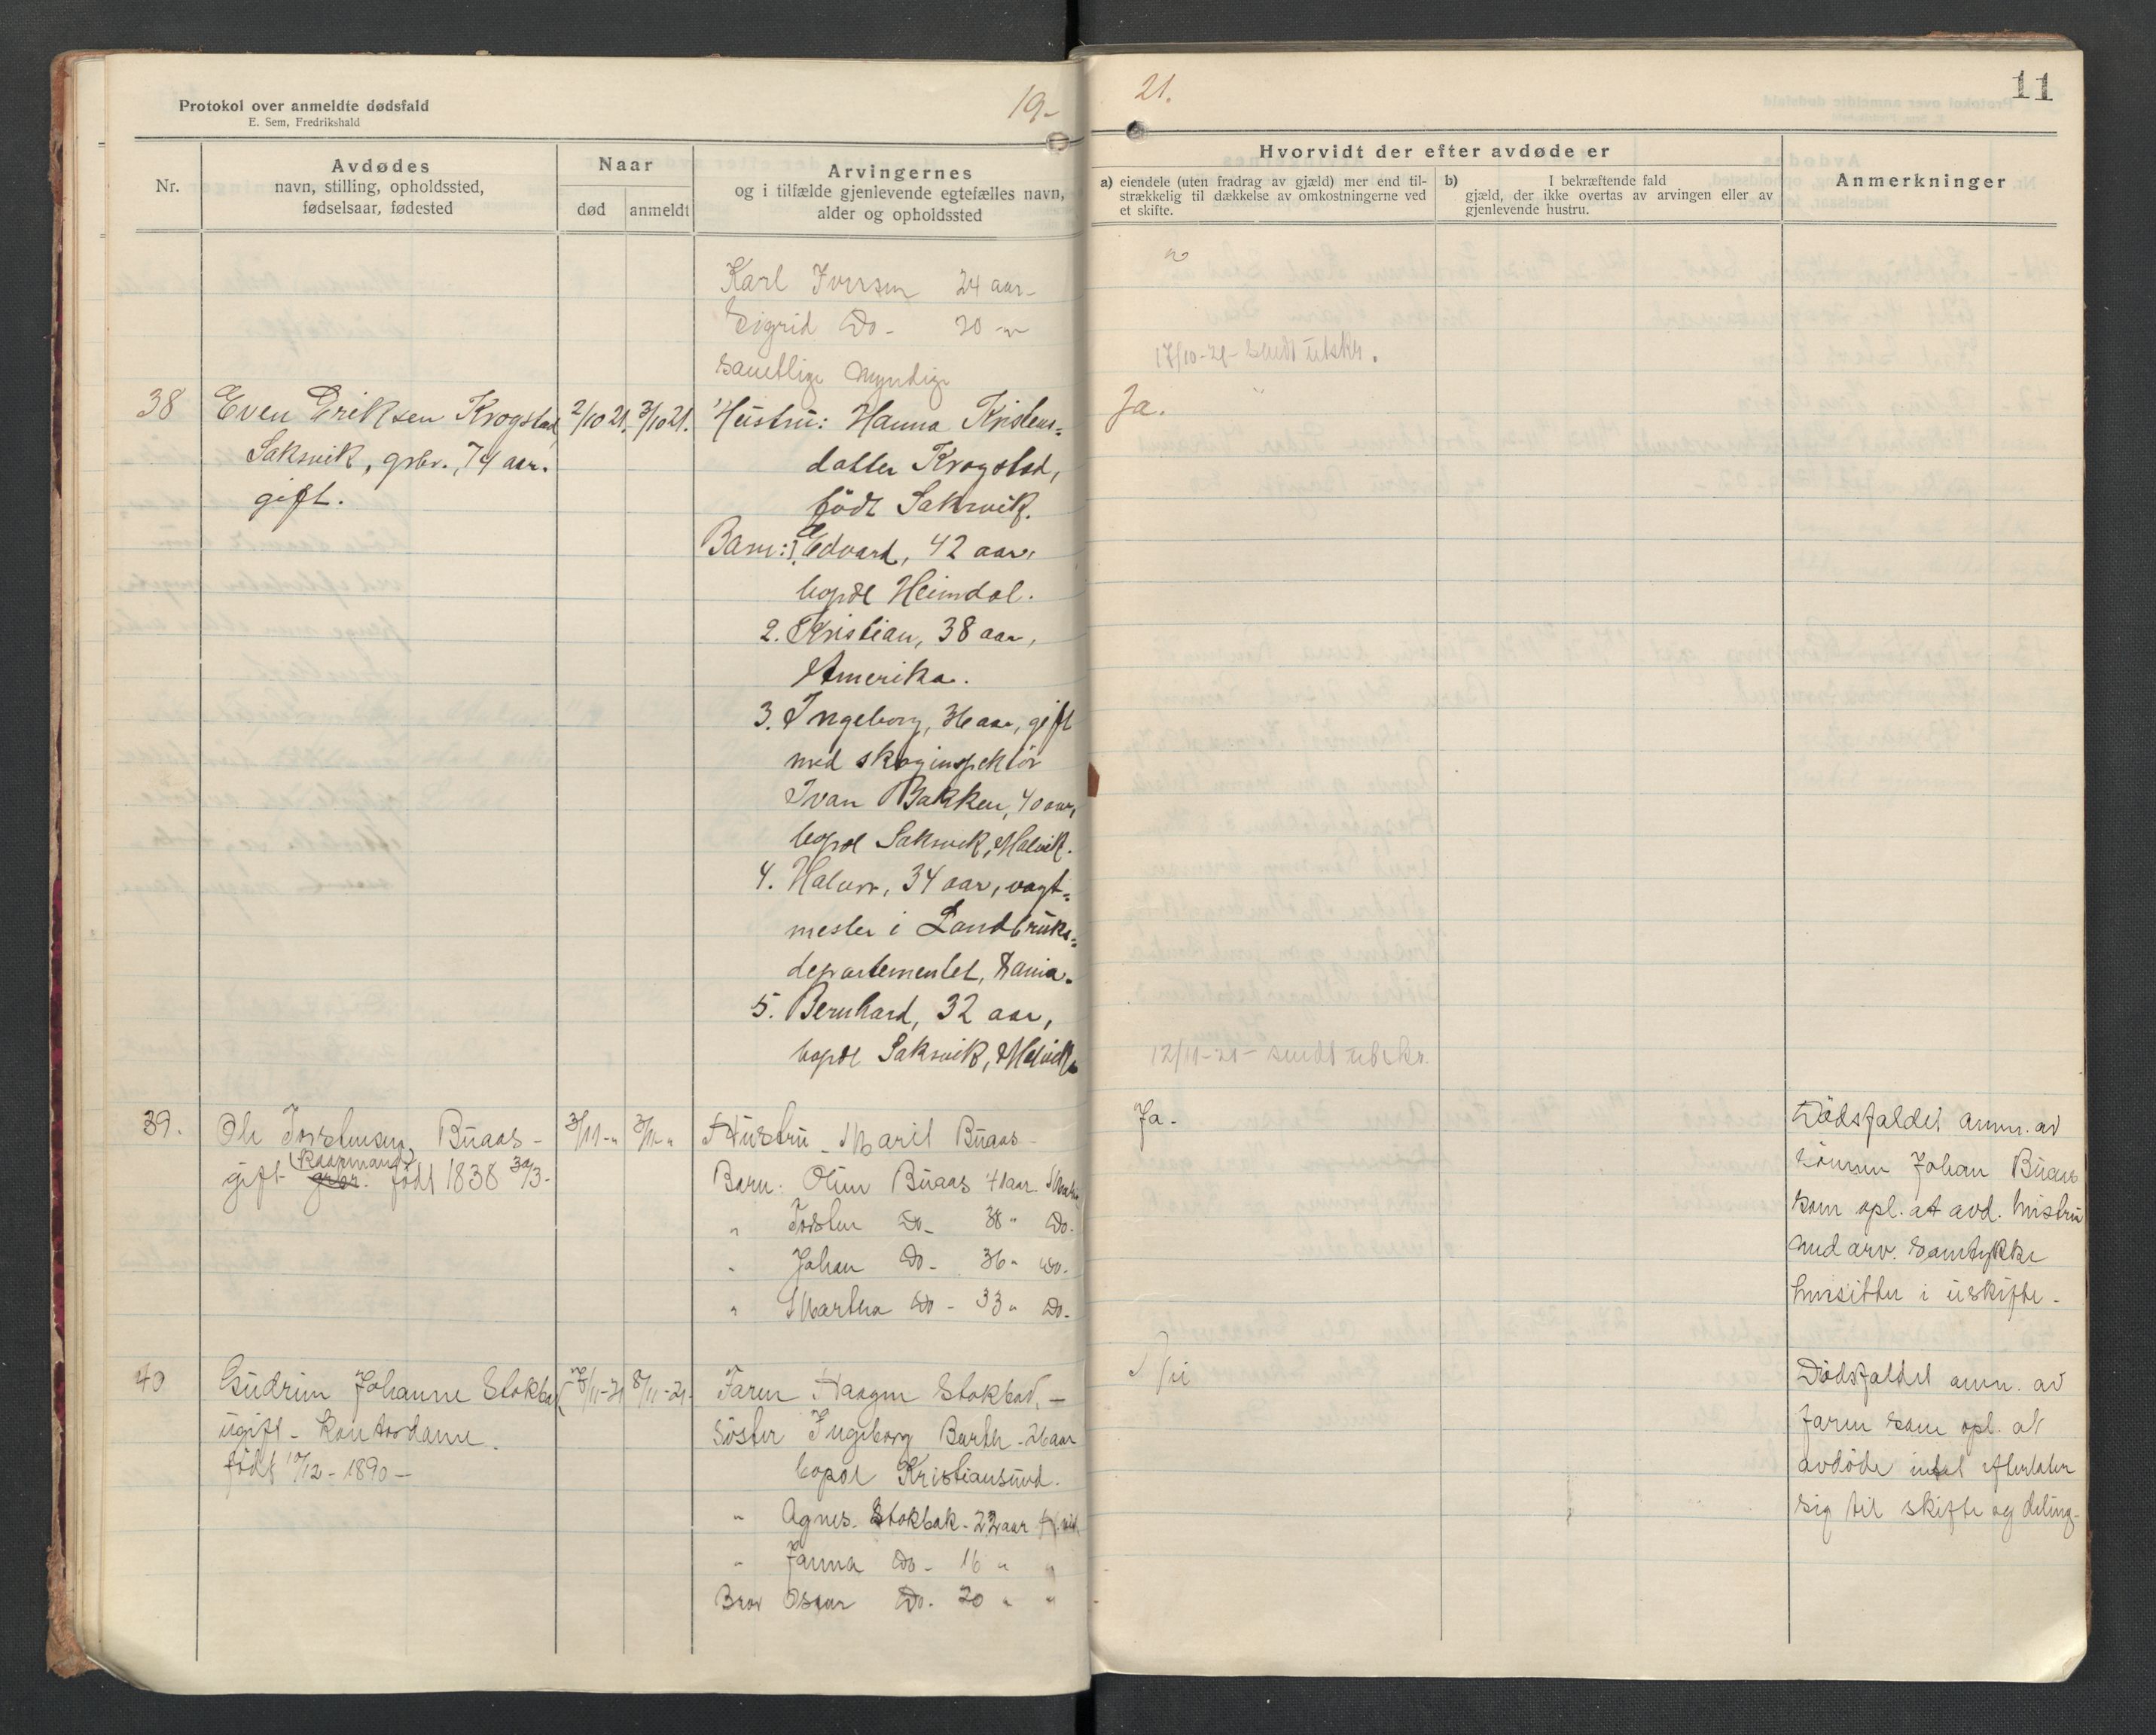 Protokol over anmeldte dødsfald
E. Sem, Fredrikshald
19-
Nr.
Avdødes
navn, stilling, opholdssted,
fødselsaar, fødested
Naar
død
anmeldt
Arvingernes
og i tilfælde gjenlevende egtefælles navn,
alder og opholdssted
Karl Iversen 24 aar-
Sigrid Do- 20 -"-
samtlige myndige
38 Even Eriksen Krogstad 2/10 21. 3/10 21. Hustru: Hanna Kristens=
Saksvik, gbr., 74 aar. datter Krogstad,
gift. født Saksvik.
Barn: 1. Edvard, 42 aar,
bopæl Heimdal.
2. Kristian, 38 aar,
Amerika.
3. Ingeborg, 36 aar, gift
med skoginspektør
Ivan Bakken, 40 aar,
bopæl Saksvik, Malvik.
4. Halvor, 34 aar, vagt=
mester i Landbruks=
departementet, Kania.
5. Bernhard, 32 aar,
bopæl Saksvik, Malvik.
39. Ole Torstensen Buaas- 3/11-" 3/11-" Hustru - Marit Buaas-
(Kaarmand)
gift gbr. født 1838 30/3- Barn: Oline Buaas 41 aar.
" Torsten Do- 38 " Do.
" Johan Do- 36 " Do.
" Martha Do- 33 " Do.
40 Gudrun Johanne Stokbak 7/11-21 8/11-21- Faren Haagen Stokbak, -
ugift - Kontordame. Søster Ingeborg Barth - 26 aar
født 10/12-1890- bopæl Kristiansund.
" Agnes Stokbak - 22 aar
" Janna Do- 16 " "
Bror Oskar Do- 20 " "
21.
11
Hvorvidt der efter avdøde er
a) eiendele (uten fradrag av gjæld) mer end til-
strækkelig til dækkelse av omkostningerne ved
et skifte.
b) I bekræftende fald
gjæld, der ikke overtas av arvingen eller av
gjenlevende hustru.
Anmerkninger
17/10-21- sendt utskr.
Ja.
12/11-21- sendt utskr.
Ja-
Dødsfaldet anm. av
sønnen Johan Buaas
som opl. at avd. hustru
med arv. samtykke
hensitter i uskifte-
Nei
Dødsfaldet anm. av
faren som opl. at
avdøde intet efterlater
sig til skifte og deling-